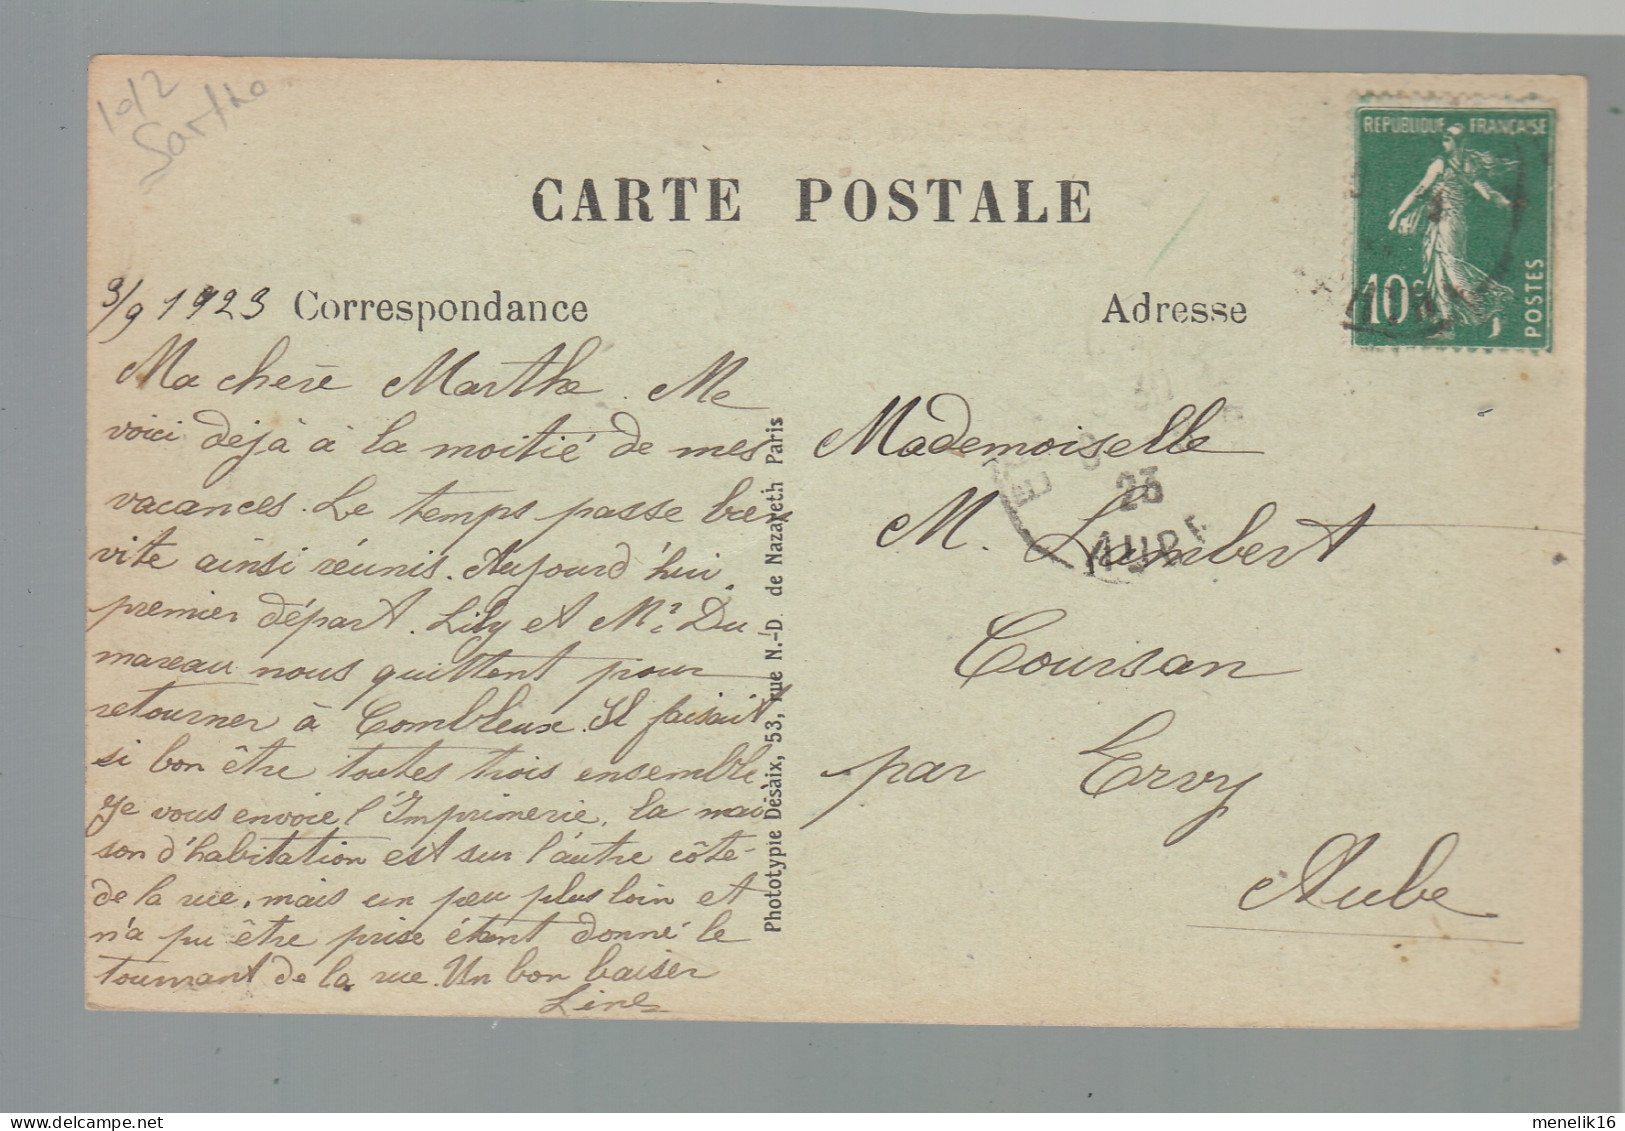 10/2
Sarthe
CARTE POSTALE
REPUBLIQUE FRANÇAISE
10c
POSTES
3/9 1923 Correspondance
Adresse
Ma chère Marthe. Me
voici déjà à la moitié de mes
vacances. Le temps passe bien
vite ainsi réunis. Aujourd'hui,
premier départ. Lily et Mr Du
mareau nous quittent pour
retourner à Combleux. Il faisait
si bon être toutes trois ensemble
Je vous envoie l'Imprimerie, la mai
son d'habitation est sur l'autre côté
de la rue, mais un peu plus loin et
n'a pu être prise étant donné le
tournant de la rue. Un bon baiser
Line
Phototypie Désaix, 53, rue N.-D. de Nazareth Paris
Mademoiselle
M. Lambert
Coursan
par Ervy
Aube
23
AUBE
menelik16